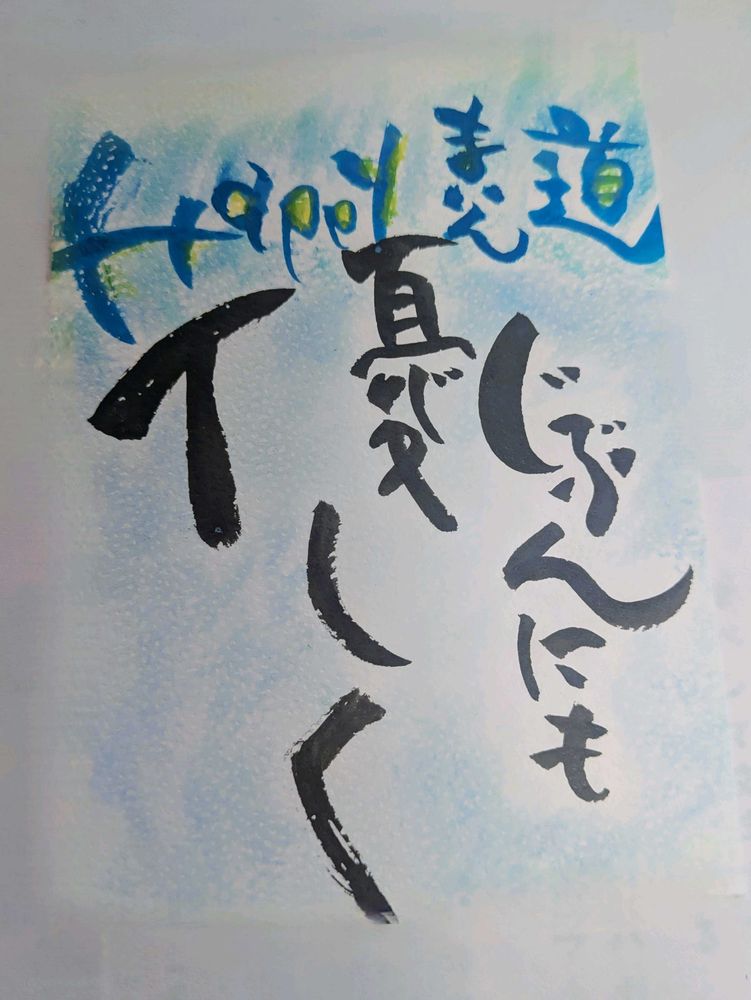 Happyまいん道
じぶんにも
優しく